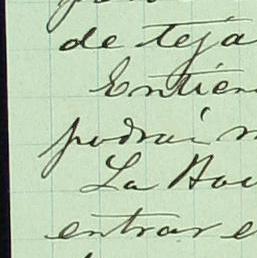 de teja
Entien
podrá
La
entrar e